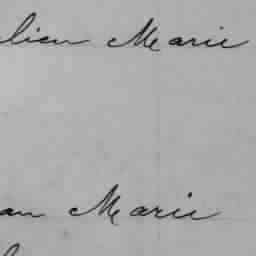 lien Marie
an Marie